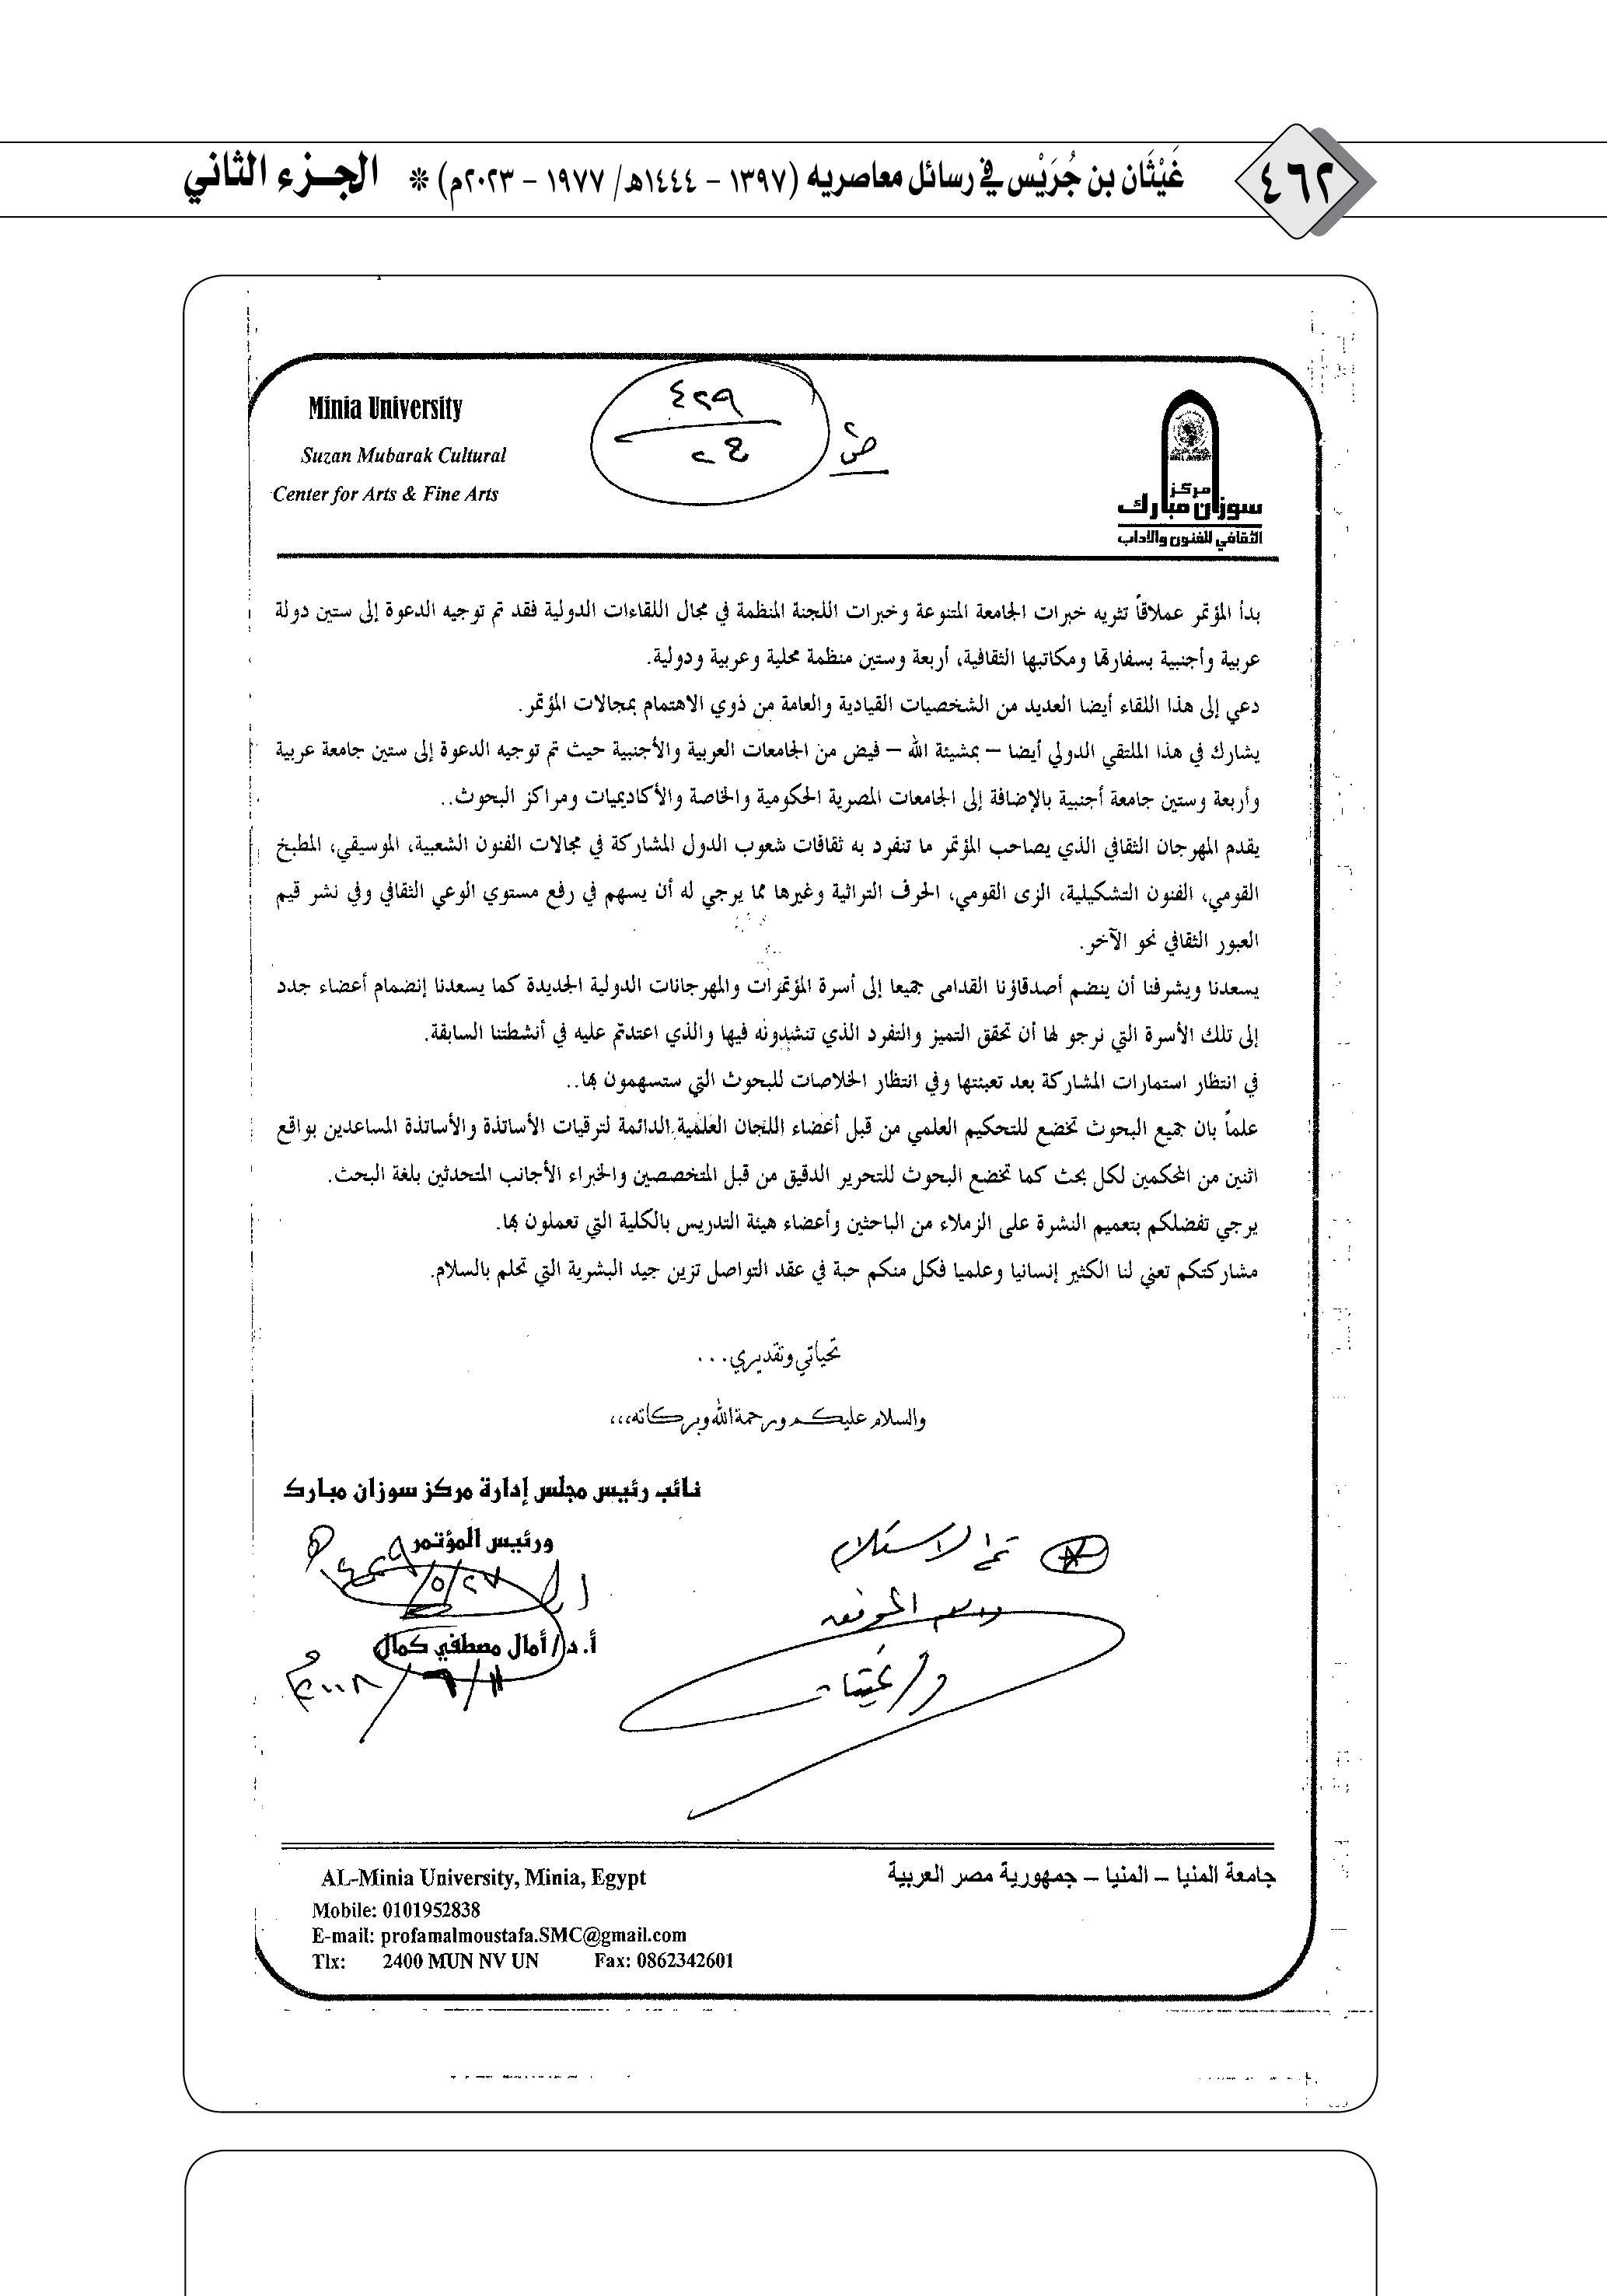 ٤٦٢
غَيْثَان بن جُرَيْس في رسائل معاصريه (١٣٩٧ - ١٤٤٤هـ/ ١٩٧٧ - ٢٠٢٣م) * الجزء الثاني
Minia University
Suzan Mubarak Cultural
Center for Arts & Fine Arts
ص
٤٢٩
مركز
سوزان مبارك
الثقافي للفنون والآداب
بدأ المؤتمر عملاقاً تثريه خبرات الجامعة المتنوعة وخبرات اللجنة المنظمة في مجال اللقاءات الدولية فقد تم توجيه الدعوة إلى ستين دولة
عربية وأجنبية بسفاراتها ومكاتبها الثقافية، أربعة وستين منظمة محلية وعربية ودولية.
دعي إلى هذا اللقاء أيضا العديد من الشخصيات القيادية والعامة من ذوي الاهتمام بمجالات المؤتمر.
يشارك في هذا الملتقي الدولي أيضا – بمشيئة الله – فيض من الجامعات العربية والأجنبية حيث تم توجيه الدعوة إلى ستين جامعة عربية
وأربعة وستين جامعة أجنبية بالإضافة إلى الجامعات المصرية الحكومية والخاصة والأكاديميات ومراكز البحوث..
يقدم المهرجان الثقافي الذي يصاحب المؤتمر ما تنفرد به ثقافات شعوب الدول المشاركة في مجالات الفنون الشعبية، الموسيقي، المطبخ
القومي، الفنون التشكيلية، الزى القومي، الحرف التراثية وغيرها مما يرجي له أن يسهم في رفع مستوي الوعي الثقافي وفي نشر قيم
العبور الثقافي نحو الآخر.
يسعدنا ويشرفنا أن ينضم أصدقاؤنا القدامى جميعا إلى أسرة المؤتمرات والمهرجانات الدولية الجديدة كما يسعدنا إنضمام أعضاء جدد
إلى تلك الأسرة التي نرجو لها أن تحقق التميز والتفرد الذي تنشدونه فيها والذي اعتدتم عليه في أنشطتنا السابقة.
في انتظار استمارات المشاركة بعد تعبئتها وفي انتظار الخلاصات للبحوث التي ستسهمون بها..
علماً بان جميع البحوث تخضع للتحكيم العلمي من قبل أعضاء اللجان العلمية الدائمة لترقيات الأساتذة والأساتذة المساعدين بواقع
اثنين من المحكمين لكل بحث كما تخضع البحوث للتحرير الدقيق من قبل المتخصصين والخبراء الأجانب المتحدثين بلغة البحث.
يرجي تفضلكم بتعميم النشرة على الزملاء من الباحثين وأعضاء هيئة التدريس بالكلية التي تعملون بها.
مشاركتكم تعني لنا الكثير إنسانيا وعلميا فكل منكم حبة في عقد التواصل تزين جيد البشرية التي تحلم بالسلام.
تحياتي وتقديري...
والسلام عليكم ورحمة الله وبركاته،،،
نائب رئيس مجلس إدارة مركز سوزان مبارك
ورئيس المؤتمر
أ.د/ أمال مصطفي كمال
تم الاستلام
د/ غيثان
٢٧/٥/١٤٢٩هـ
١١/٦/٢٠٠٨م
جامعة المنيا – المنيا – جمهورية مصر العربية
AL-Minia University, Minia, Egypt
Mobile: 0101952838
E-mail: profamalmoustafa.SMC@gmail.com
Tlx: 2400 MUN NV UN Fax: 0862342601